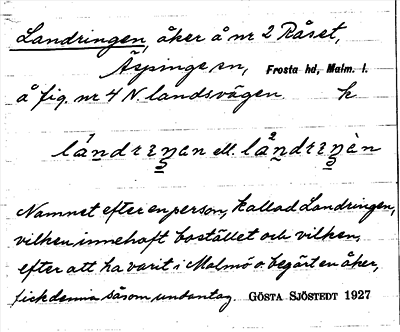 Landringen, åker å nr 2 Råset,
Äspinge sn, Frosta hd, Malm. l.
å fig. nr 4 N. landsvägen. k
Namnet efter en person, kallad Landringen,
vilken innehaft bostället och vilken,
efter att ha varit i Malmö o. begärt en åker,
fick denna såsom undantag. GÖSTA SJÖSTEDT 1927